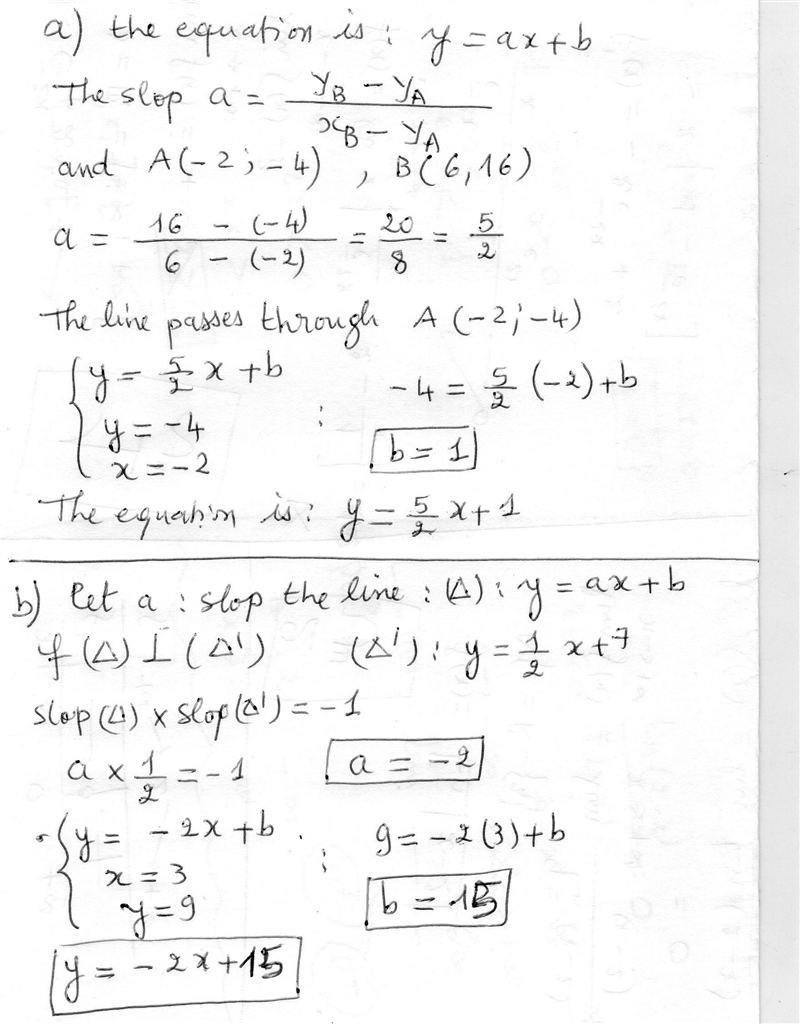 a) the equation is : y = ax + b
The slop a = (y_B - y_A) / (x_B - y_A)
and A(-2 ; -4) , B(6, 16)
a = (16 - (-4)) / (6 - (-2)) = 20/8 = 5/2
The line passes through A (-2 ; -4)
{ y = 5/2 x + b
y = -4
x = -2
; -4 = 5/2 (-2) + b
b = 1
The equation is : y = 5/2 x + 1
b) let a : slop the line : (Δ) : y = ax + b
if (Δ) ⊥ (Δ') (Δ') : y = 1/2 x + 7
slop (Δ) x slop (Δ') = -1
a x 1/2 = -1 a = -2
{ y = -2x + b
x = 3
y = 9
; 9 = -2(3) + b
b = 15
y = -2x + 15